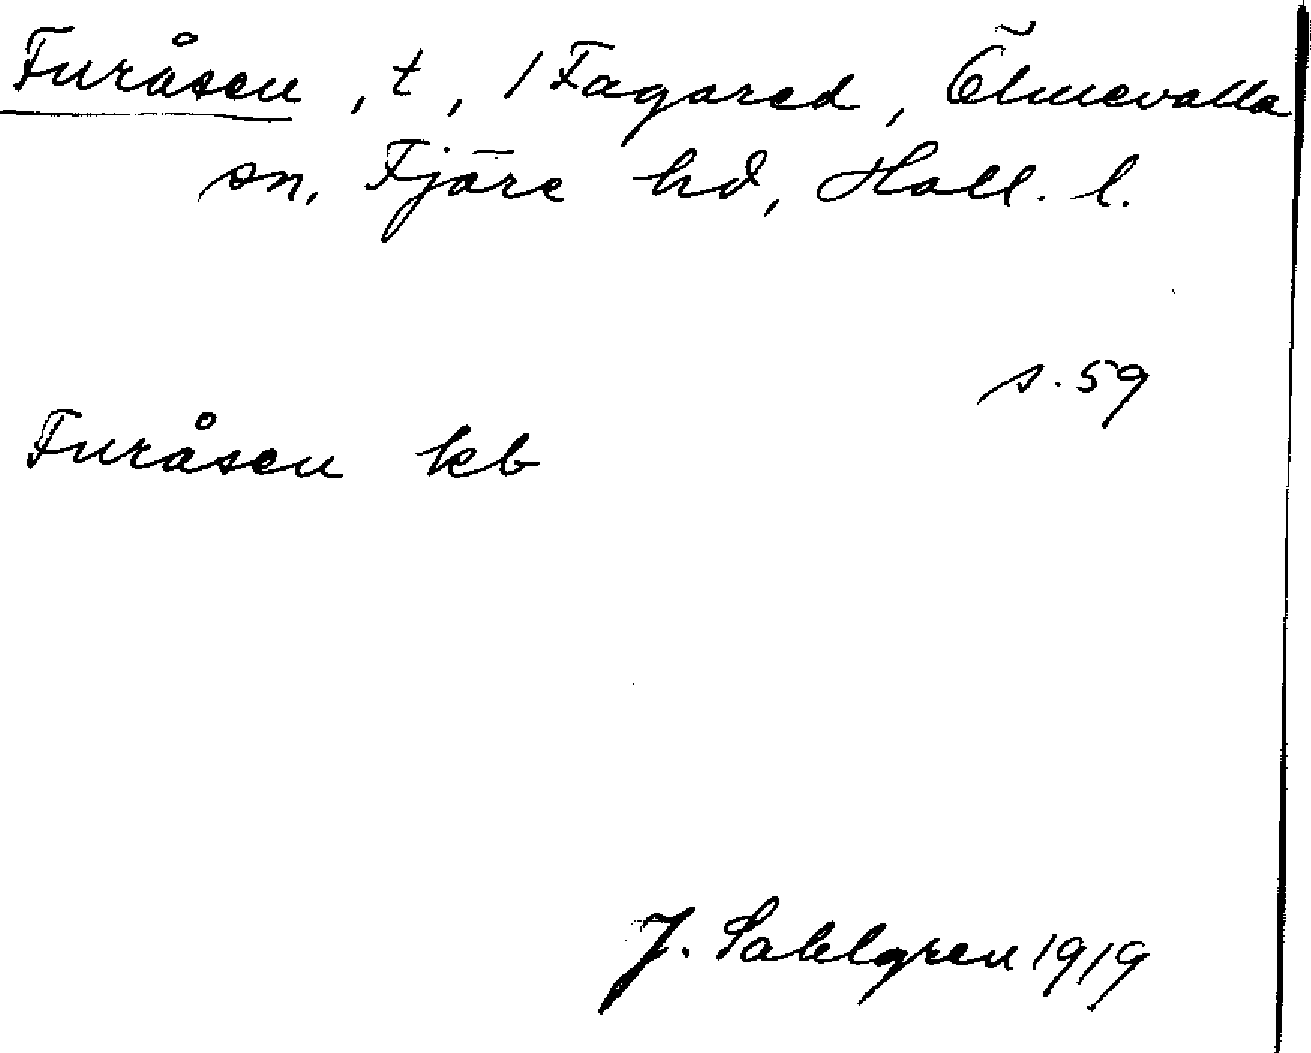 Furåsen, t, / Fagared, Ölmevalla
sn, Fjäre hd, Hall. l.
s. 59
Furåsen kb
J. Sahlgren 1919